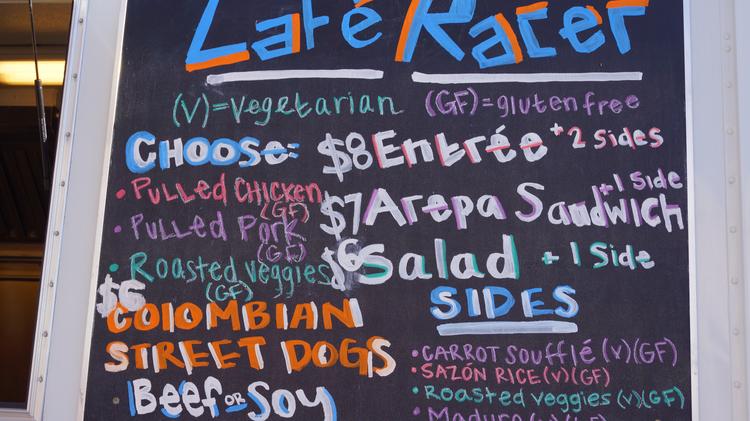 Café Racer
(V)=Vegetarian (GF)=gluten free
CHOOSE:
• PULLED CHICKEN
(GF)
• PULLED Pork
(GF)
• Roasted veggies
(GF)
$8 Entrée + 2 sides
$7 Arepa Sandwich +1 Side
$6 Salad + 1 Side
$6 COLOMBIAN
STREET DOGS
Beef OR Soy
SIDES
• CARROT Soufflé (V)(GF)
• SAZÓN RICE (V)(GF)
• Roasted veggies (V)(GF)